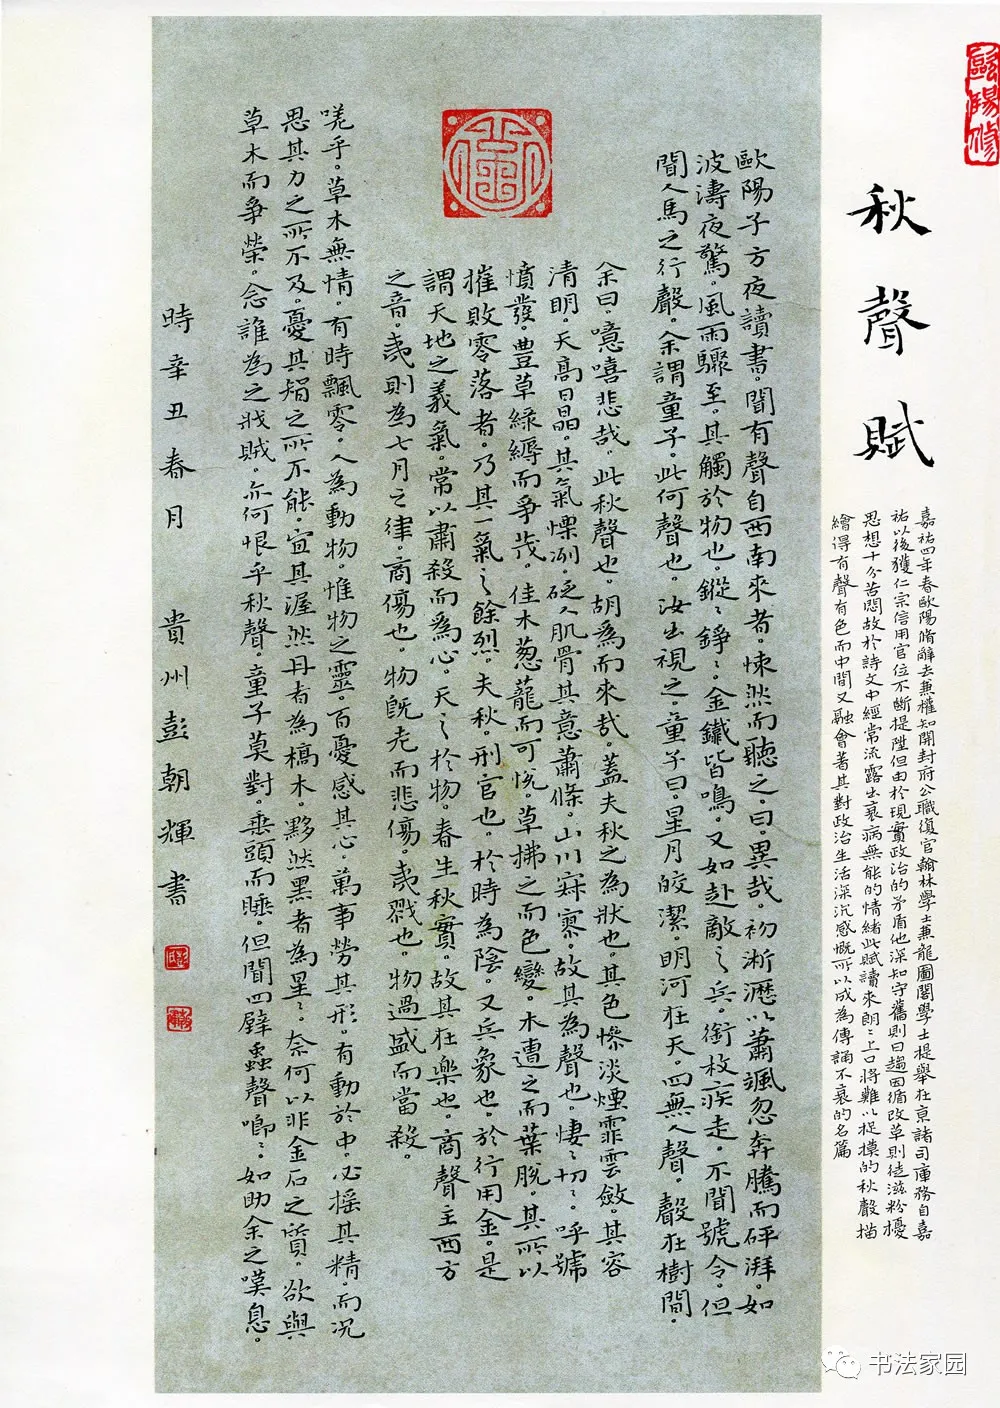 歐陽修
秋聲賦
嘉祐四年春歐陽脩辭去兼權知開封府公職復官翰林學士兼龍圖閣學士提舉在京諸司庫務自嘉
祐以後獲仁宗信用官位不斷提陞但由於現實政治的矛盾他深知守舊則曰趨因循改革則徒滋粉擾
思想十分苦悶故於詩文中經常流露出衰病無能的情緒此賦讀來朗〻上口將難以捉摸的秋聲描
繪得有聲有色而中間又融會著其對政治生活深沉感慨所以成為傳誦不衰的名篇
歐陽子方夜讀書。聞有聲自西南來者。悚然而聽之。曰。異哉。初淅瀝以蕭颯忽奔騰而砰湃。如
波濤夜驚。風雨驟至。其觸於物也。鏦〻錚〻。金鐵皆鳴。又如赴敵之兵。銜枚疾走。不聞號令。但
聞人馬之行聲。余謂童子。此何聲也。汝出視之。童子曰。星月皎潔。明河在天。四無人聲。聲在樹間。
余曰。噫嘻悲哉。此秋聲也。胡為而來哉。蓋夫秋之為狀也。其色慘淡煙霏雲斂。其容
清明。天高日晶。其氣慄冽。砭人肌骨其意蕭條。山川寂寥。故其為聲也。悽〻切〻。呼號
憤發。豐草綠縟而爭茂。佳木葱蘢而可悅。草拂之而色變。木遭之而葉脫。其所以
摧敗零落者。乃其一氣之餘烈。夫秋。刑官也。於時為陰。又兵象也。於行用金。是
謂天地之義氣。常以肅殺而為心。天之於物。春生秋實。故其在樂也。商聲主西方
之音。夷則為七月之律。商傷也。物既老而悲傷。夷戮也。物過盛而當殺。
嗟乎。草木無情。有時飄零。人為動物。惟物之靈。百憂感其心。萬事勞其形。有動於中。必摇其精。而況
思其力之所不及。憂其智之所不能。宜其渥然丹者為槁木。黟然黑者為星〻。奈何以非金石之質。欲與
草木而爭榮。念誰為之戕賊。亦何恨。乎秋聲。童子莫對。垂頭而睡。但聞四壁蟲聲唧〻。如助余之嘆息。
時辛丑春月 貴州彭朝輝書
书法家园